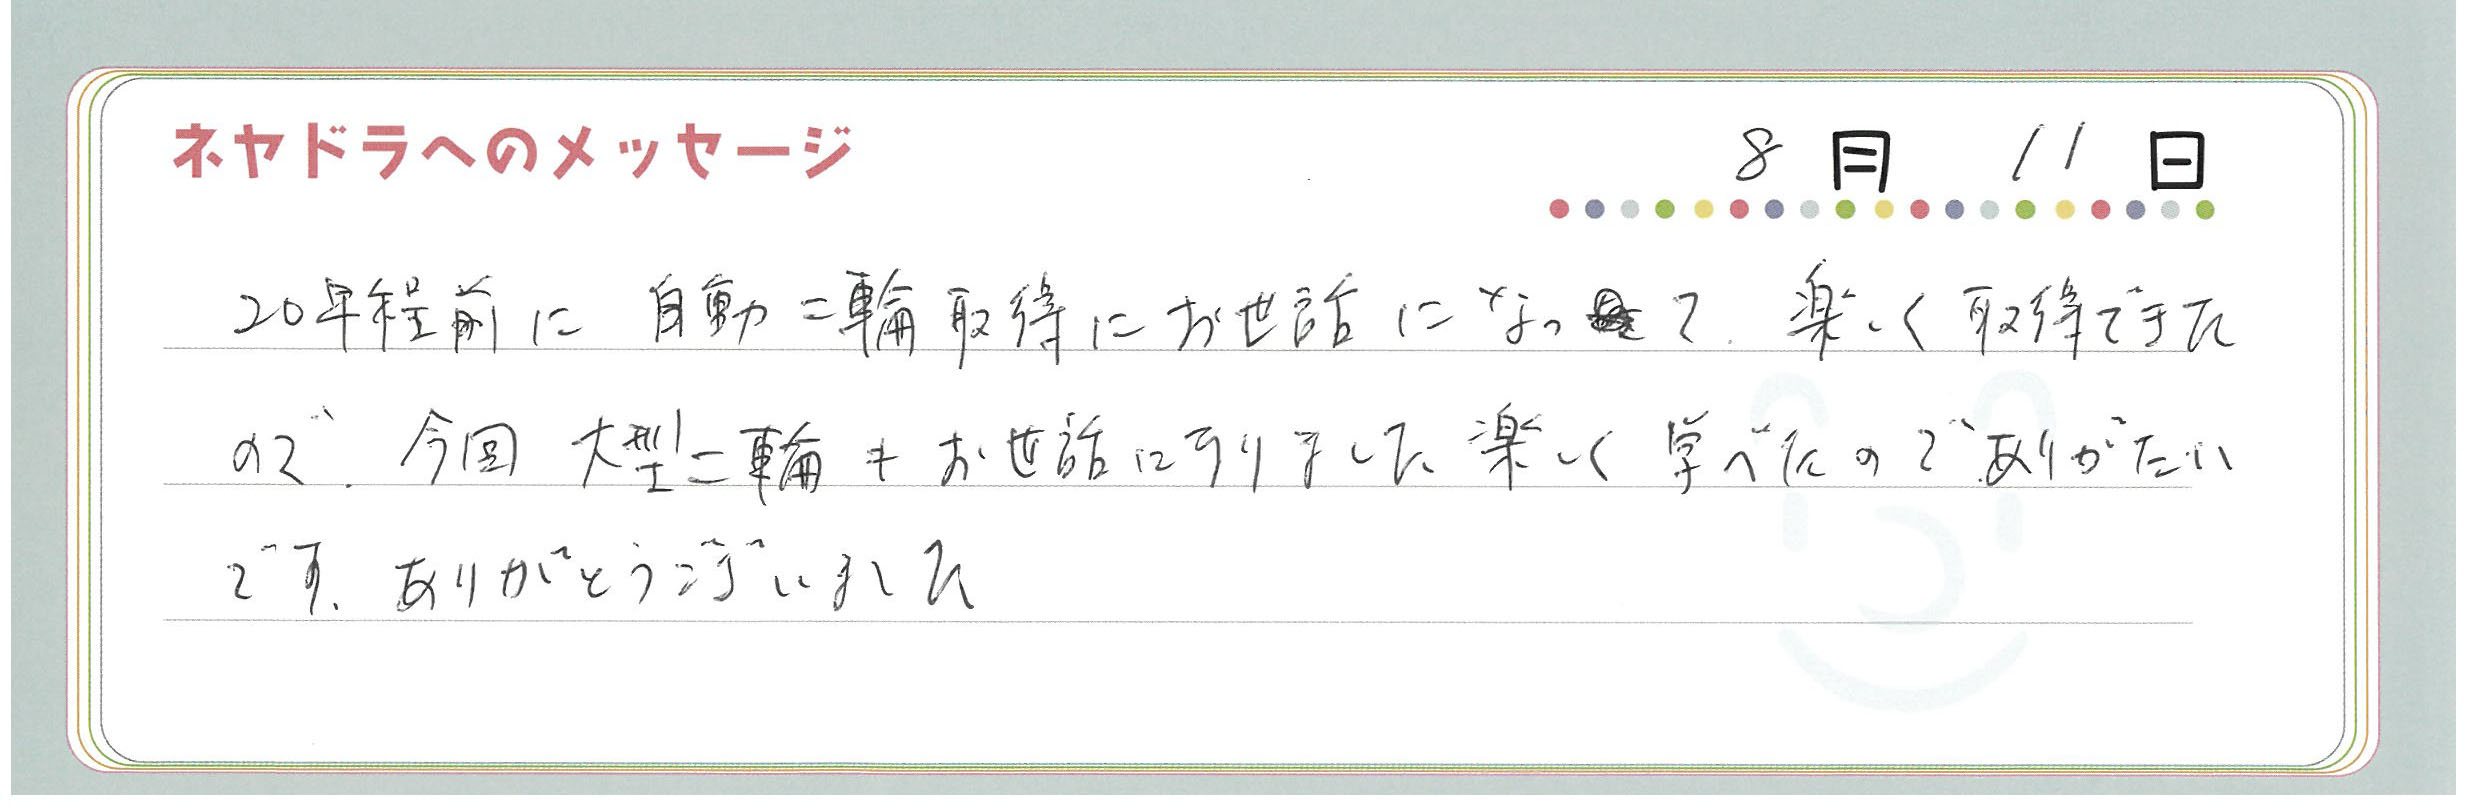 ネヤドラへのメッセージ
8月 11日
20年程前に 自動二輪取得にお世話になって、楽しく取得できた
ので、今回 大型二輪もお世話になりました 楽しく学べたのでありがたい
です、ありがとうございました